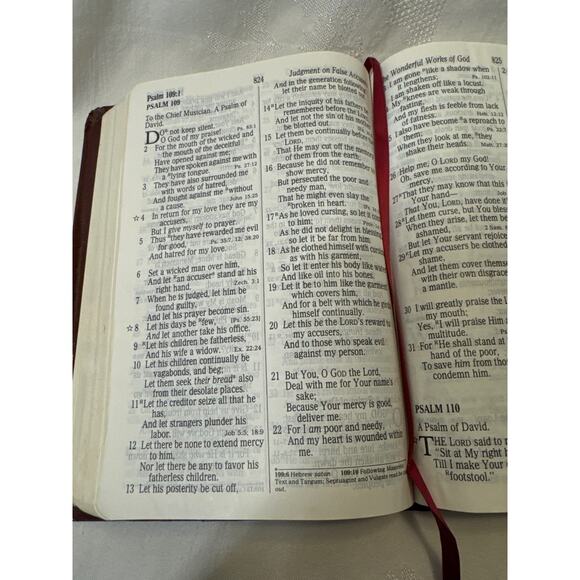 Psalm 109:1
824
Judgment on False Accusers
PSALM 109
To the Chief Musician. A Psalm of
David.
DO not keep silent, Ps. 83:1
O God of my praise!
2 For the mouth of the wicked and
the mouth of the deceitful
Have opened against me;
They have spoken against me with
a lying tongue. Ps. 27:12
3 They have also surrounded me
with words of hatred,
And fought against me without
a cause. John 15:25
☆4 In return for my love they are my
accusers,
But I give myself to prayer.
5 Thus they have rewarded me evil
for good, Ps. 35:7, 12; 38:20
And hatred for my love.
6 Set a wicked man over him,
And let an accuser stand at his
right hand. Zech. 3:1
7 When he is judged, let him be
found guilty,
And let his prayer become sin.
☆8 Let his days be few, [Ps. 55:23]
And let another take his office.
9 Let his children be fatherless,
And his wife a widow. Ex. 22:24
10 Let his children continually be
vagabonds, and beg;
Let them seek their bread also
from their desolate places.
11 Let the creditor seize all that he
has,
And let strangers plunder his
labor. Job 5:5; 18:9
12 Let there be none to extend mercy
to him,
Nor let there be any to favor his
fatherless children.
13 Let his posterity be cut off,
And in the generation following
let their name be blotted out.
14 Let the iniquity of his fathers be
remembered before the LORD,
And let not the sin of his mother
be blotted out.
15 Let them be continually before the
LORD,
That He may cut off the memory
of them from the earth;
16 Because he did not remember to
show mercy,
But persecuted the poor and
needy man,
That he might even slay the
broken in heart.
17 As he loved cursing, so let it come
to him;
As he did not delight in blessing,
so let it be far from him.
18 As he clothed himself with cursing
as with his garment,
So let it enter his body like water,
And like oil into his bones.
19 Let it be to him like the garment
which covers him,
And for a belt with which he girds
himself continually.
20 Let this be the LORD's reward to
my accusers,
And to those who speak evil
against my person.
21 But You, O GOD the Lord,
Deal with me for Your name's
sake;
Because Your mercy is good,
deliver me.
22 For I am poor and needy,
And my heart is wounded within
me.
109:6 Hebrew satan 109:10 Following Masoretic
Text and Targum; Septuagint and Vulgate read be cast
out.
The Wonderful Works of God
825
I am gone like a shadow when
it lengthens; Ps. 102:11
I am shaken off like a locust.
My knees are weak through
fasting,
And my flesh is feeble from lack
of fatness. Heb. 12:12
25 I also have become a reproach to
them;
When they look at me, they
shake their heads. Matt. 27:39
26 Help me, O LORD my God!
Oh, save me according to Your
mercy,
27 That they may know that this is
Your hand—
That You, LORD, have done it!
28 Let them curse, but You bless;
When they arise, let them be
ashamed,
But let Your servant rejoice.
29 Let my accusers be clothed
shame,
And let them cover themselves
with their own disgrace
a mantle.
30 I will greatly praise the L
my mouth;
Yes, I will praise Him a
multitude.
31 For He shall stand at
hand of the poor,
To save him from tho
condemn him.
PSALM 110
A Psalm of David.
☆THE LORD said to m
"Sit at My right h
Till I make Your e
footstool."